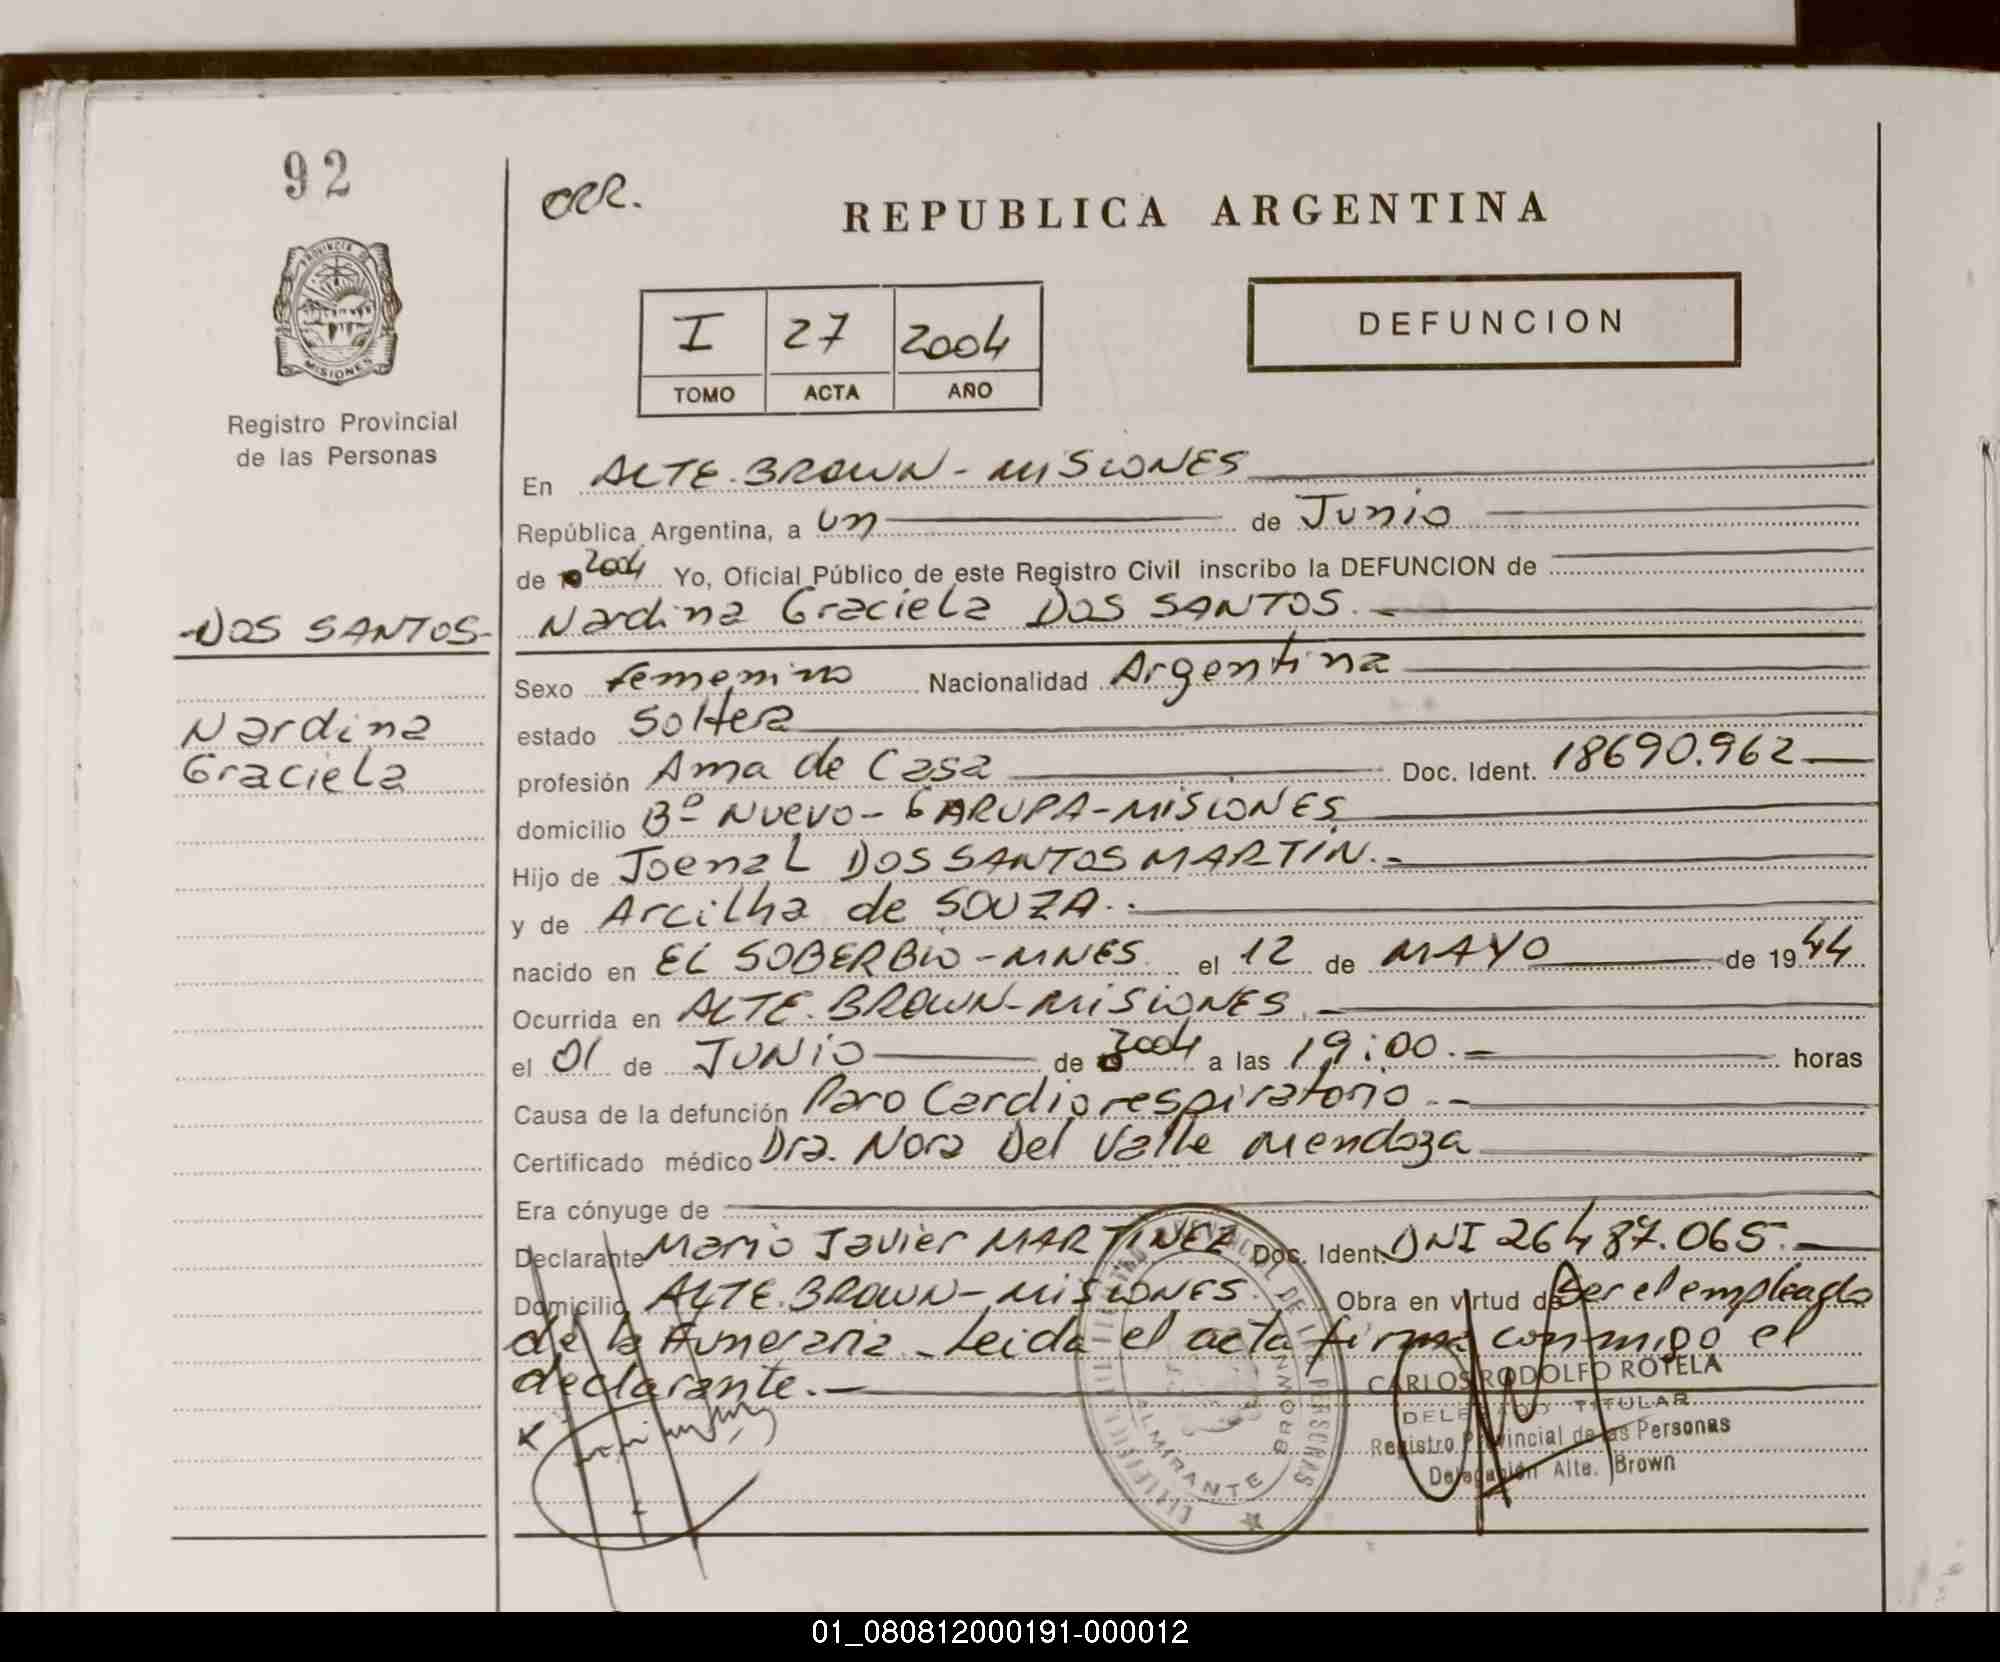 92
ORR.
REPUBLICA ARGENTINA
PROVINCIA DE MISIONES
I 27 2004
TOMO ACTA AÑO
DEFUNCION
Registro Provincial
de las Personas
En ALTE. BROWN - MISIONES
República Argentina, a un de Junio
de 2004 Yo, Oficial Público de este Registro Civil inscribo la DEFUNCION de
-DOS SANTOS- Nardina Graciela DOS SANTOS.-
Sexo femenino Nacionalidad Argentina
Nardina
Graciela
estado Soltera
profesión Ama de Casa Doc. Ident. 18690.962
domicilio Bº NUEVO - GARUPA - MISIONES
Hijo de Joenal DOS SANTOS MARTIN.-
y de Arcilha de SOUZA..
nacido en EL SOBERBIO - MNES. el 12 de MAYO de 1944
Ocurrida en ALTE. BROWN - MISIONES.
el 01 de JUNIO de 2004 a las 19:00.- horas
Causa de la defunción Paro Cardiorespiratorio.-
Certificado médico Dra. Nora Del Valle Mendoza
Era cónyuge de
Declarante Mario Javier MARTINEZ Doc. Ident. DNI 26487.065.
Domicilio ALTE. BROWN - MISIONES. Obra en virtud de Ser el empleado
de la Funeraria. Leida el acta firma conmigo el
declarante.-
CARLOS RODOLFO ROTELA
DELEGADO TITULAR
Registro Provincial de las Personas
Delegación Alte. Brown
DE LAS PERSONAS
ALMIRANTE BROWN
01_080812000191-000012